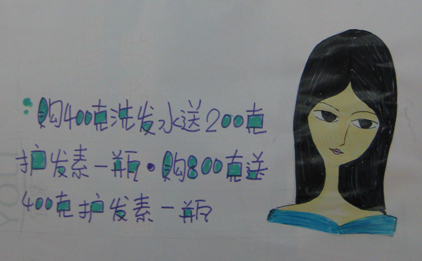 购400克洗发水送200克
护发素一瓶·购800克送
400克护发素一瓶